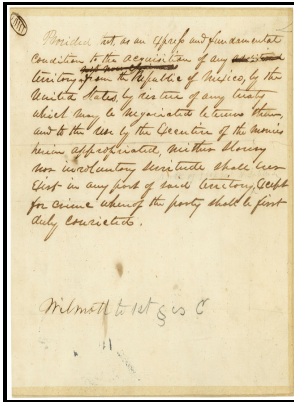 Provided, as an express and fundamental
condition to the acquisition of any
territory from the Republic of Mexico, by the
United States, by virtue of any treaty
which may be negociated between them,
and to the use by the Executive of the monies
herein appropriated, neither slavery
nor involuntary servitude shall ever
exist in any part of said territory, except
for crime whereof the party shall be first
duly convicted.
Wilmott to 1st § is C